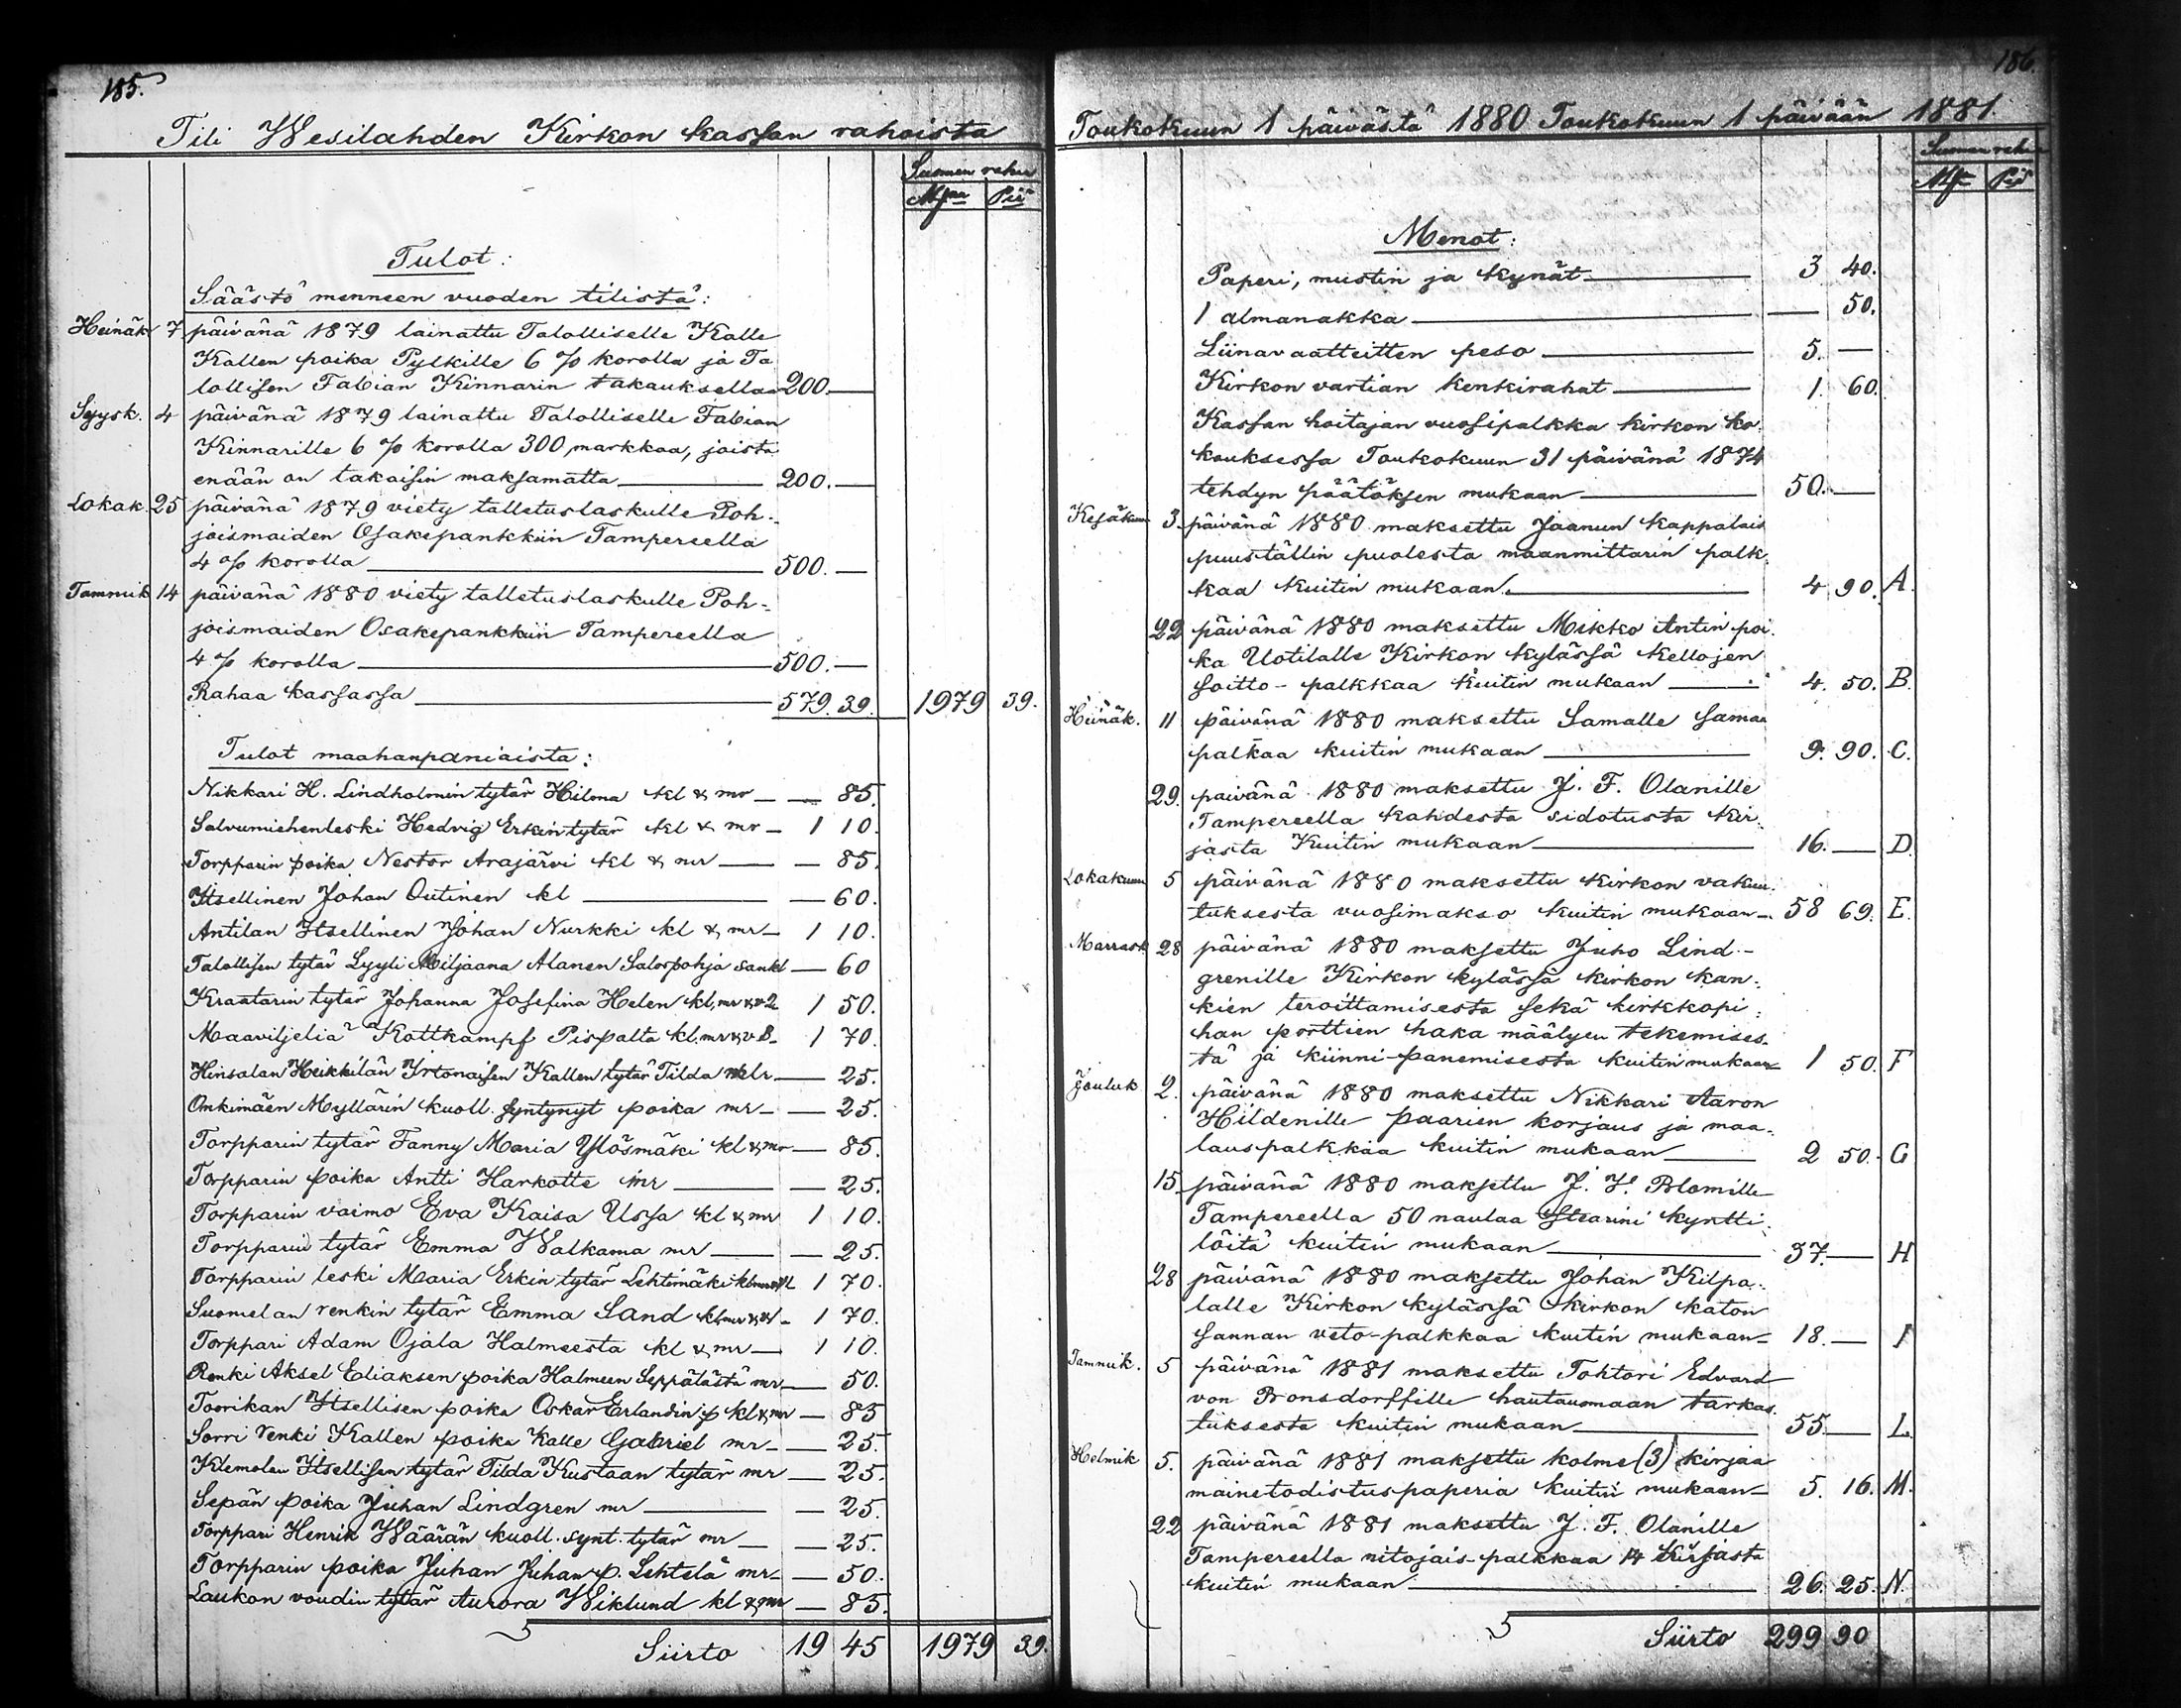 185.
Tili Wesilahden Kirkon kassan rahoista
Suomen raha
Mkaa Piä
Tulot:
Säästö menneen vuoden tilistä:
Heinäk 7 päivänä 1879 lainattu Talolliselle Kalle
Kallen poika Pylkille 6 % korolla ja Ta
lollisen Fabian Kinnarin takauksella 200. —
Syysk. 4 päivänä 1879 lainattu Talolliselle Fabian
Kinnarille 6 % korolla 300 markkaa, joista
enään on takaisin maksamatta — 200. —
Lokak. 25 päivänä 1879 viety talletuslaskulle Poh-
joismaiden Osakepankkiin Tampereella
4 % korolla — 500. —
Tammik 14 päivänä 1880 viety talletuslaskulle Poh-
joismaiden Osakepankkiin Tampereella
4 % korolla — 500. —
Rahaa kassassa — 579. 39. 1979 39.
Tulot maahanpaniaista:
Nikkari H. Lindholmin tytär Hilma kl & mr — — 85.
Salvumiehenleski Hedvig Erkintytär kl & mr — 1 10.
Torpparin poika Nestor Arajärvi kl & mr — — 85.
Itsellinen Johan Outinen kl — — 60.
Antilan Itsellinen Johan Nurkki kl & mr — 1 10.
Talollisen tytär Lyyli Miljaana Alanen Salospohja sankl — 60
Kraatarin tytär Johanna Josefina Helen kl, mr & v 2 1 50.
Maaviljeliä Kottkampf Pispalta kl. mr & v B — 1 70.
Hinsalan Heikkilän Irtonaisen Kallen tytär Tilda — 25.
Onkimäen Myllärin kuoll. syntynyt poika mr — — 25.
Torpparin tytär Fanny Maria Ylösmäki kl & mr — 85.
Torpparin poika Antti Harkotte mr — — 25.
Torpparin vaimo Eva Kaisa Ussa kl & mr 1 10.
Torpparin tytär Emma Walkama mr — — 25.
Torpparin leski Maria Erkin tytär Lehtimäki 1 70.
Suomelan renkin tytär Emma Sand — 1 70.
Torppari Adam Ojala Halmeesta kl & mr — 1 10.
Renki Aksel Eliaksen poika Halmeen Seppälästä mr — 50.
Toorikan Itsellisen poika Oskar Erlandin p kl & mr — 85
Sorri renki Kallen poika Kalle Gabriel mr — — 25.
Klemolan Itsellisen tytär Tilda Kustaan tytär mr — 25.
Sepän poika Juhan Lindgren mr — — 25.
Torppari Henrik Wäärän kuoll. synt. tytär mr — — 25.
Torpparin poika Juhan Juhan p. Lehtelä mr — — 50.
Laukon voudin tytär Aurora Wiklund kl & mr — 85.
Siirto 19 45 1979 39.
186.
Toukokuun 1 päivästä 1880 Toukokuun 1 päivään 1881.
Suomen raha
Mka Piä
Menot:
Paperi, mustin ja kynät — 3 40.
1 almanakka — — 50.
Liinavaatteitten peso — 5. —
Kirkon vartian kenkirahat — 1. 60.
Kassan hoitajan vuosipalkka kirkon ko-
kouksessa Toukokuun 31 päivänä 1874
tehdyn päätöksen mukaan — 50. —
Kesäkuun 3. päivänä 1880 maksettu Jaanun kappalais
puuställin puolesta maanmittarin palk-
kaa kuitin mukaan. — 4 90. A.
22 päivänä 1880 maksettu Mikko Antin poi-
ka Uotilalle Kirkon kylässä kellojen
soitto-palkkaa kuitin mukaan — 4. 50. B.
Heinäk. 11 päivänä 1880 maksettu Samalle samaa
palkaa kuitin mukaan — 9. 90. C.
29. päivänä 1880 maksettu J. F. Olanille
Tampereella kahdesta sidotusta kir-
jasta Kuitin mukaan — 16. — D.
Lokakuun 5 päivänä 1880 maksettu kirkon vakuu-
tuksesta vuosimakso kuitin mukaan — 58 69. E.
Marrask 28 päivänä 1880 maksettu Juho Lind-
grenille Kirkon kylässä kirkon kan-
kien teroittamisesta sekä kirkkopi-
han porttien haka määlyen tekemises-
tä ja kiinni-panemisesta kuitin mukaan 1 50. F
Jouluk 2. päivänä 1880 maksettu Nikkari Aaron
Hildenille paarien korjaus ja maa-
lauspalkkaa kuitin mukaan — 2 50. G
15. päivänä 1880 maksettu J. F. Blomille
Tampereella 50 naulaa Stearini kyntti-
löitä kuitin mukaan — 37. — H
28 päivänä 1880 maksettu Johan Kilpa-
lalle Kirkon kylässä kirkon katon
sannan veto-palkkaa kuitin mukaan — 18. — I
Tammik. 5 päivänä 1881 maksettu Tohtori Edvard
von Bonsdorffille hautausmaan tarkas-
tuksesta kuitin mukaan — 55. — L
Helmik 5. päivänä 1881 maksettu kolme (3) kirjaa
mainetodistuspaperia kuitin mukaan — 5. 16. M.
22 päivänä 1881 maksettu J. F. Olanille
Tampereella nitojais-palkkaa 14 Kirjasta
kuitin mukaan — 26. 25. N.
Siirto 299 90